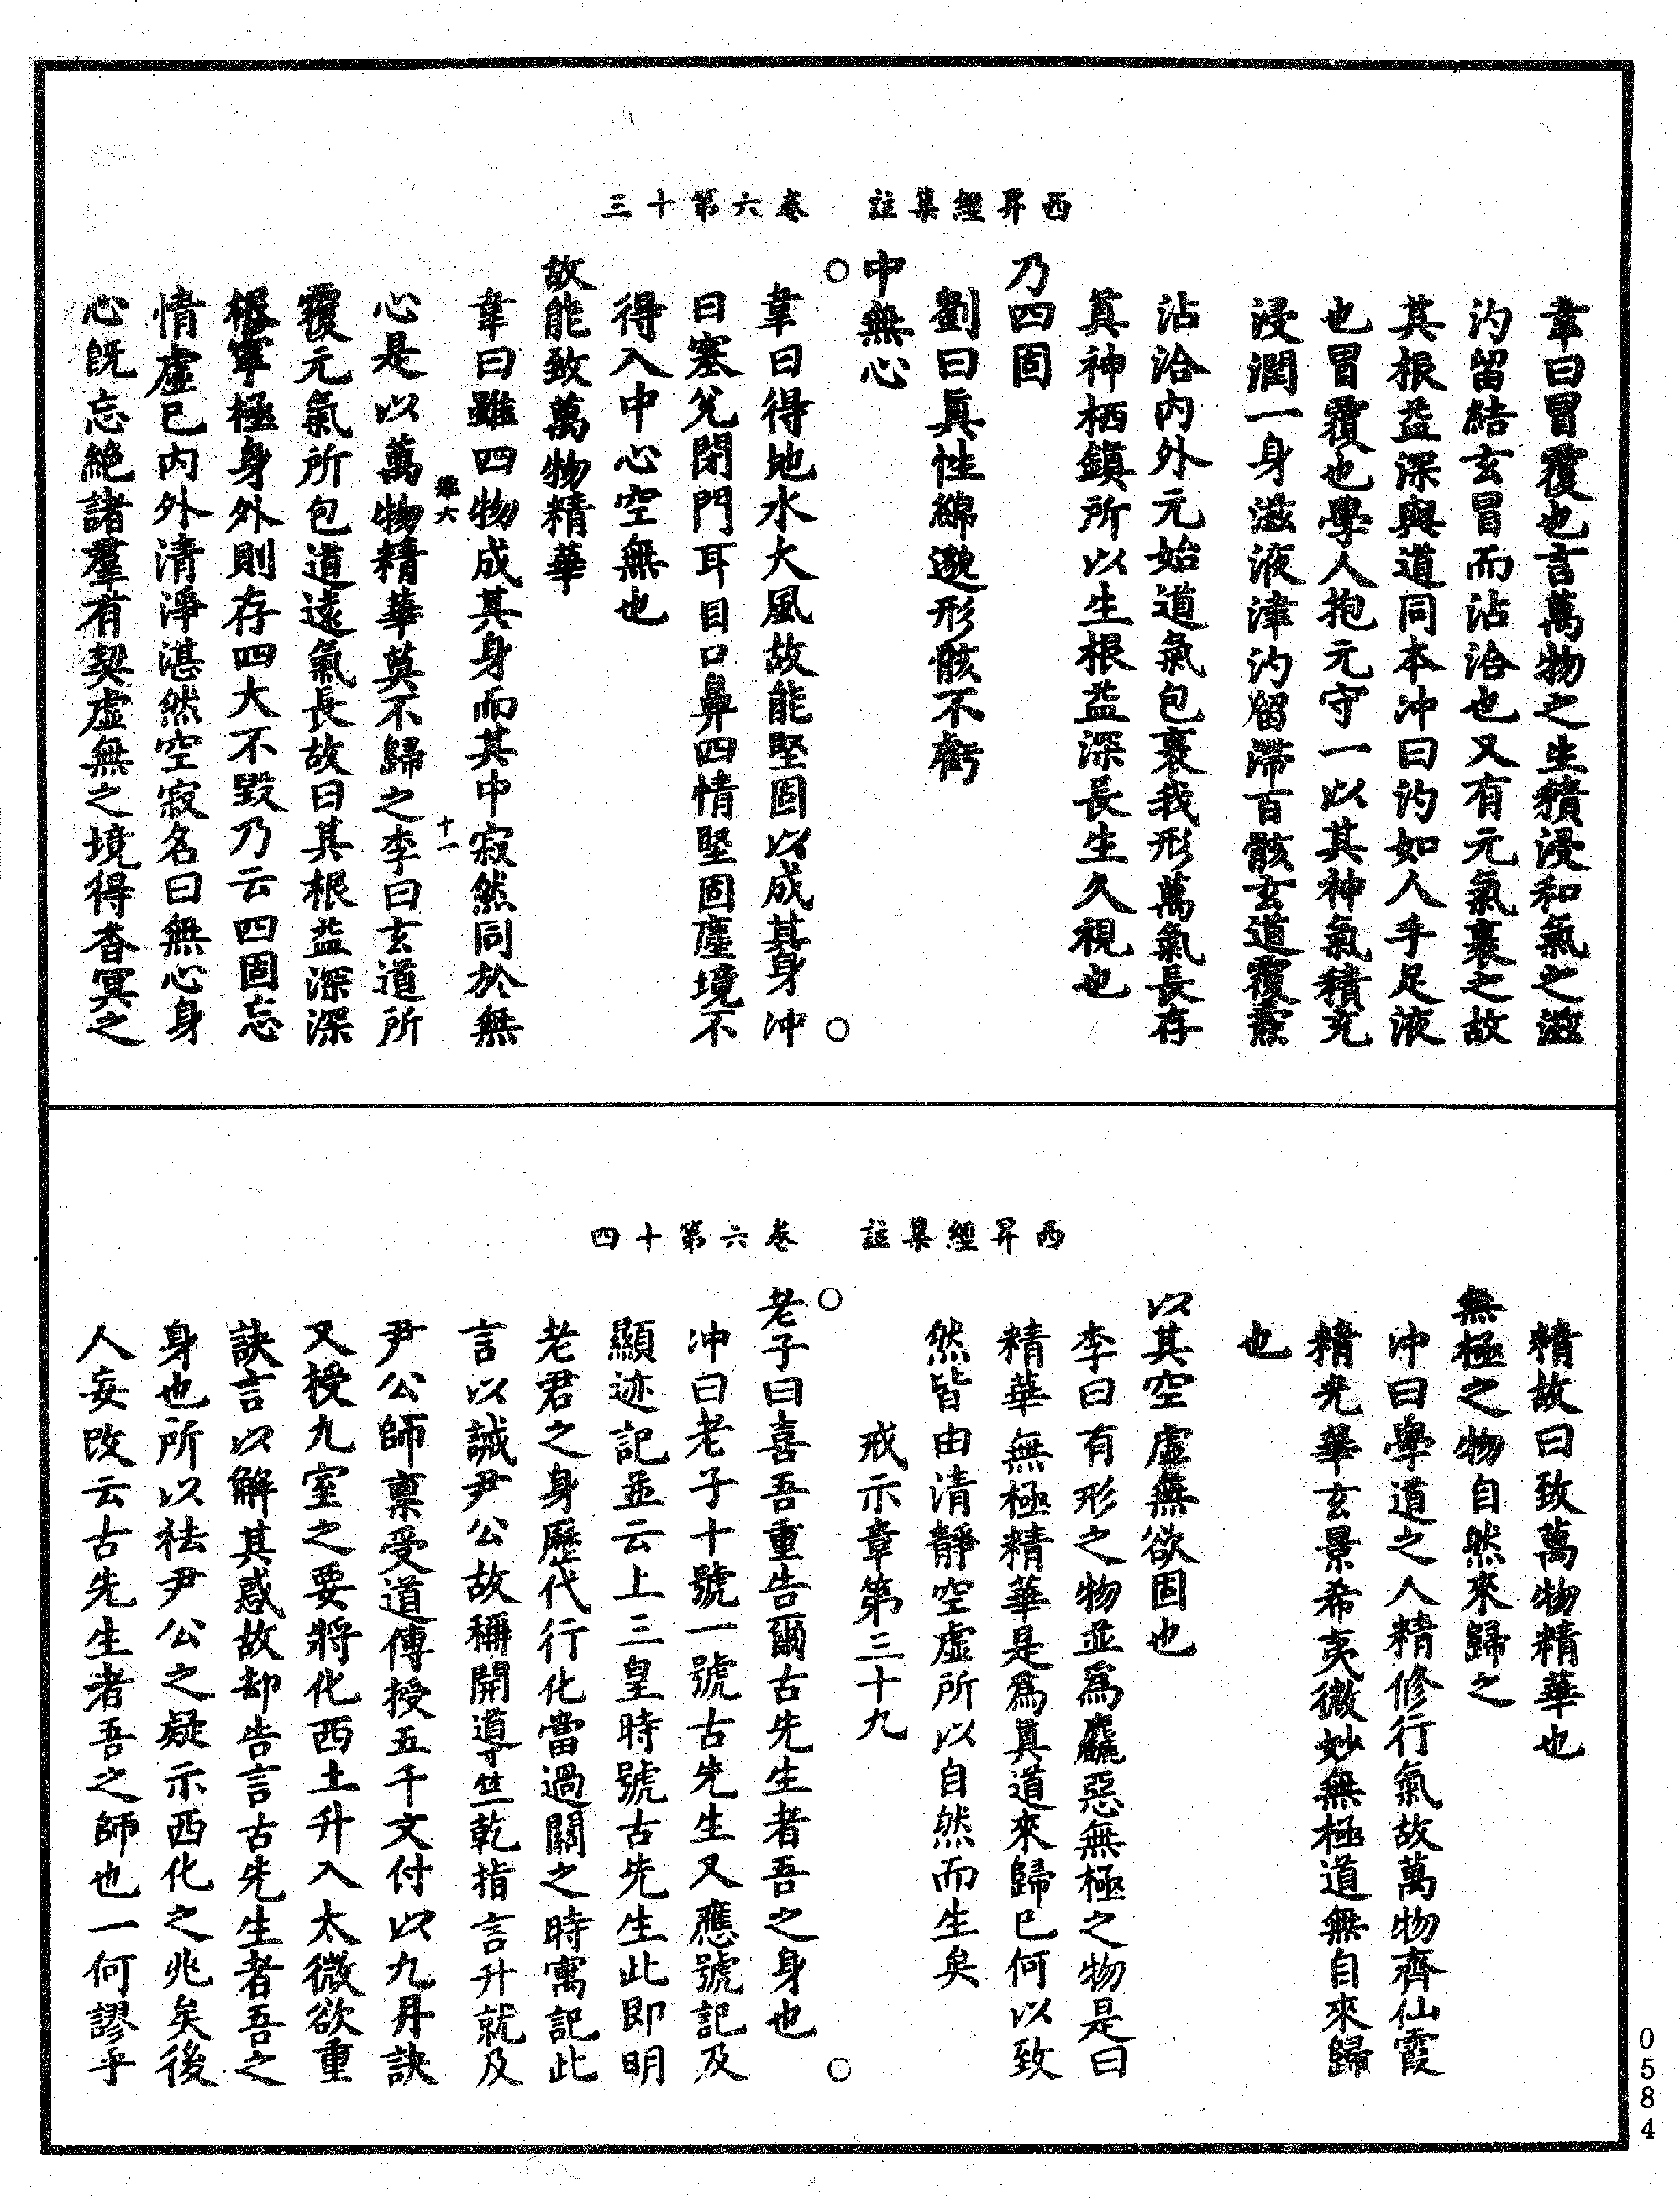 西昇經集註　卷六第十三
韋曰冒覆也言萬物之生積浸和氣之滋
汋留結玄冒而沾洽也又有元氣裹之故
其根益深與道同本冲曰汋如人手足液
也冒覆也學人抱元守一以其神氣積充
浸潤一身滋液津汋留滯百骸玄道覆熏
沾洽內外元始道氣包裹我形萬氣長存
眞神栖鎭所以生根益深長生久視也
乃四固
劉曰眞性綿邈形骸不虧
中無心
○韋曰得地水大風故能堅固以成其身冲○
曰塞兌閉門耳目口鼻四情堅固塵境不
得入中心空無也
故能致萬物精華
韋曰雖四物成其身而其中寂然同於無
維六　十一
心是以萬物精華莫不歸之李曰玄道所
覆元氣所包道遠氣長故曰其根益深深
根寧極身外則存四大不毀乃云四固忘
情虛己內外清淨湛然空寂名曰無心身
心旣忘絕諸羣有契虛無之境得杳冥之
西昇經集註　卷六第十四
精故曰致萬物精華也
無極之物自然來歸之
冲曰學道之人精修行氣故萬物齊仙霞
精光華玄景希夷微妙無極道無自來歸
也
以其空虛無欲固也
李曰有形之物並爲麤惡無極之物是曰
精華無極精華是爲眞道來歸已何以致
然皆由清靜空虛所以自然而生矣
戒示章第三十九
○老子曰喜吾重告爾古先生者吾之身也○
冲曰老子十號一號古先生又應號記及
顯迹記並云上三皇時號古先生此即明
老君之身歷代行化當過關之時寓記此
言以誡尹公故稱開導竺乾指言升就及
尹公師稟受道傳授五千文付以九丹訣
又授九室之要將化西土升入太微欲重
訣言以解其惑故却告言古先生者吾之
身也所以袪尹公之疑示西化之兆矣後
人妄改云古先生者吾之師也一何謬乎
0584